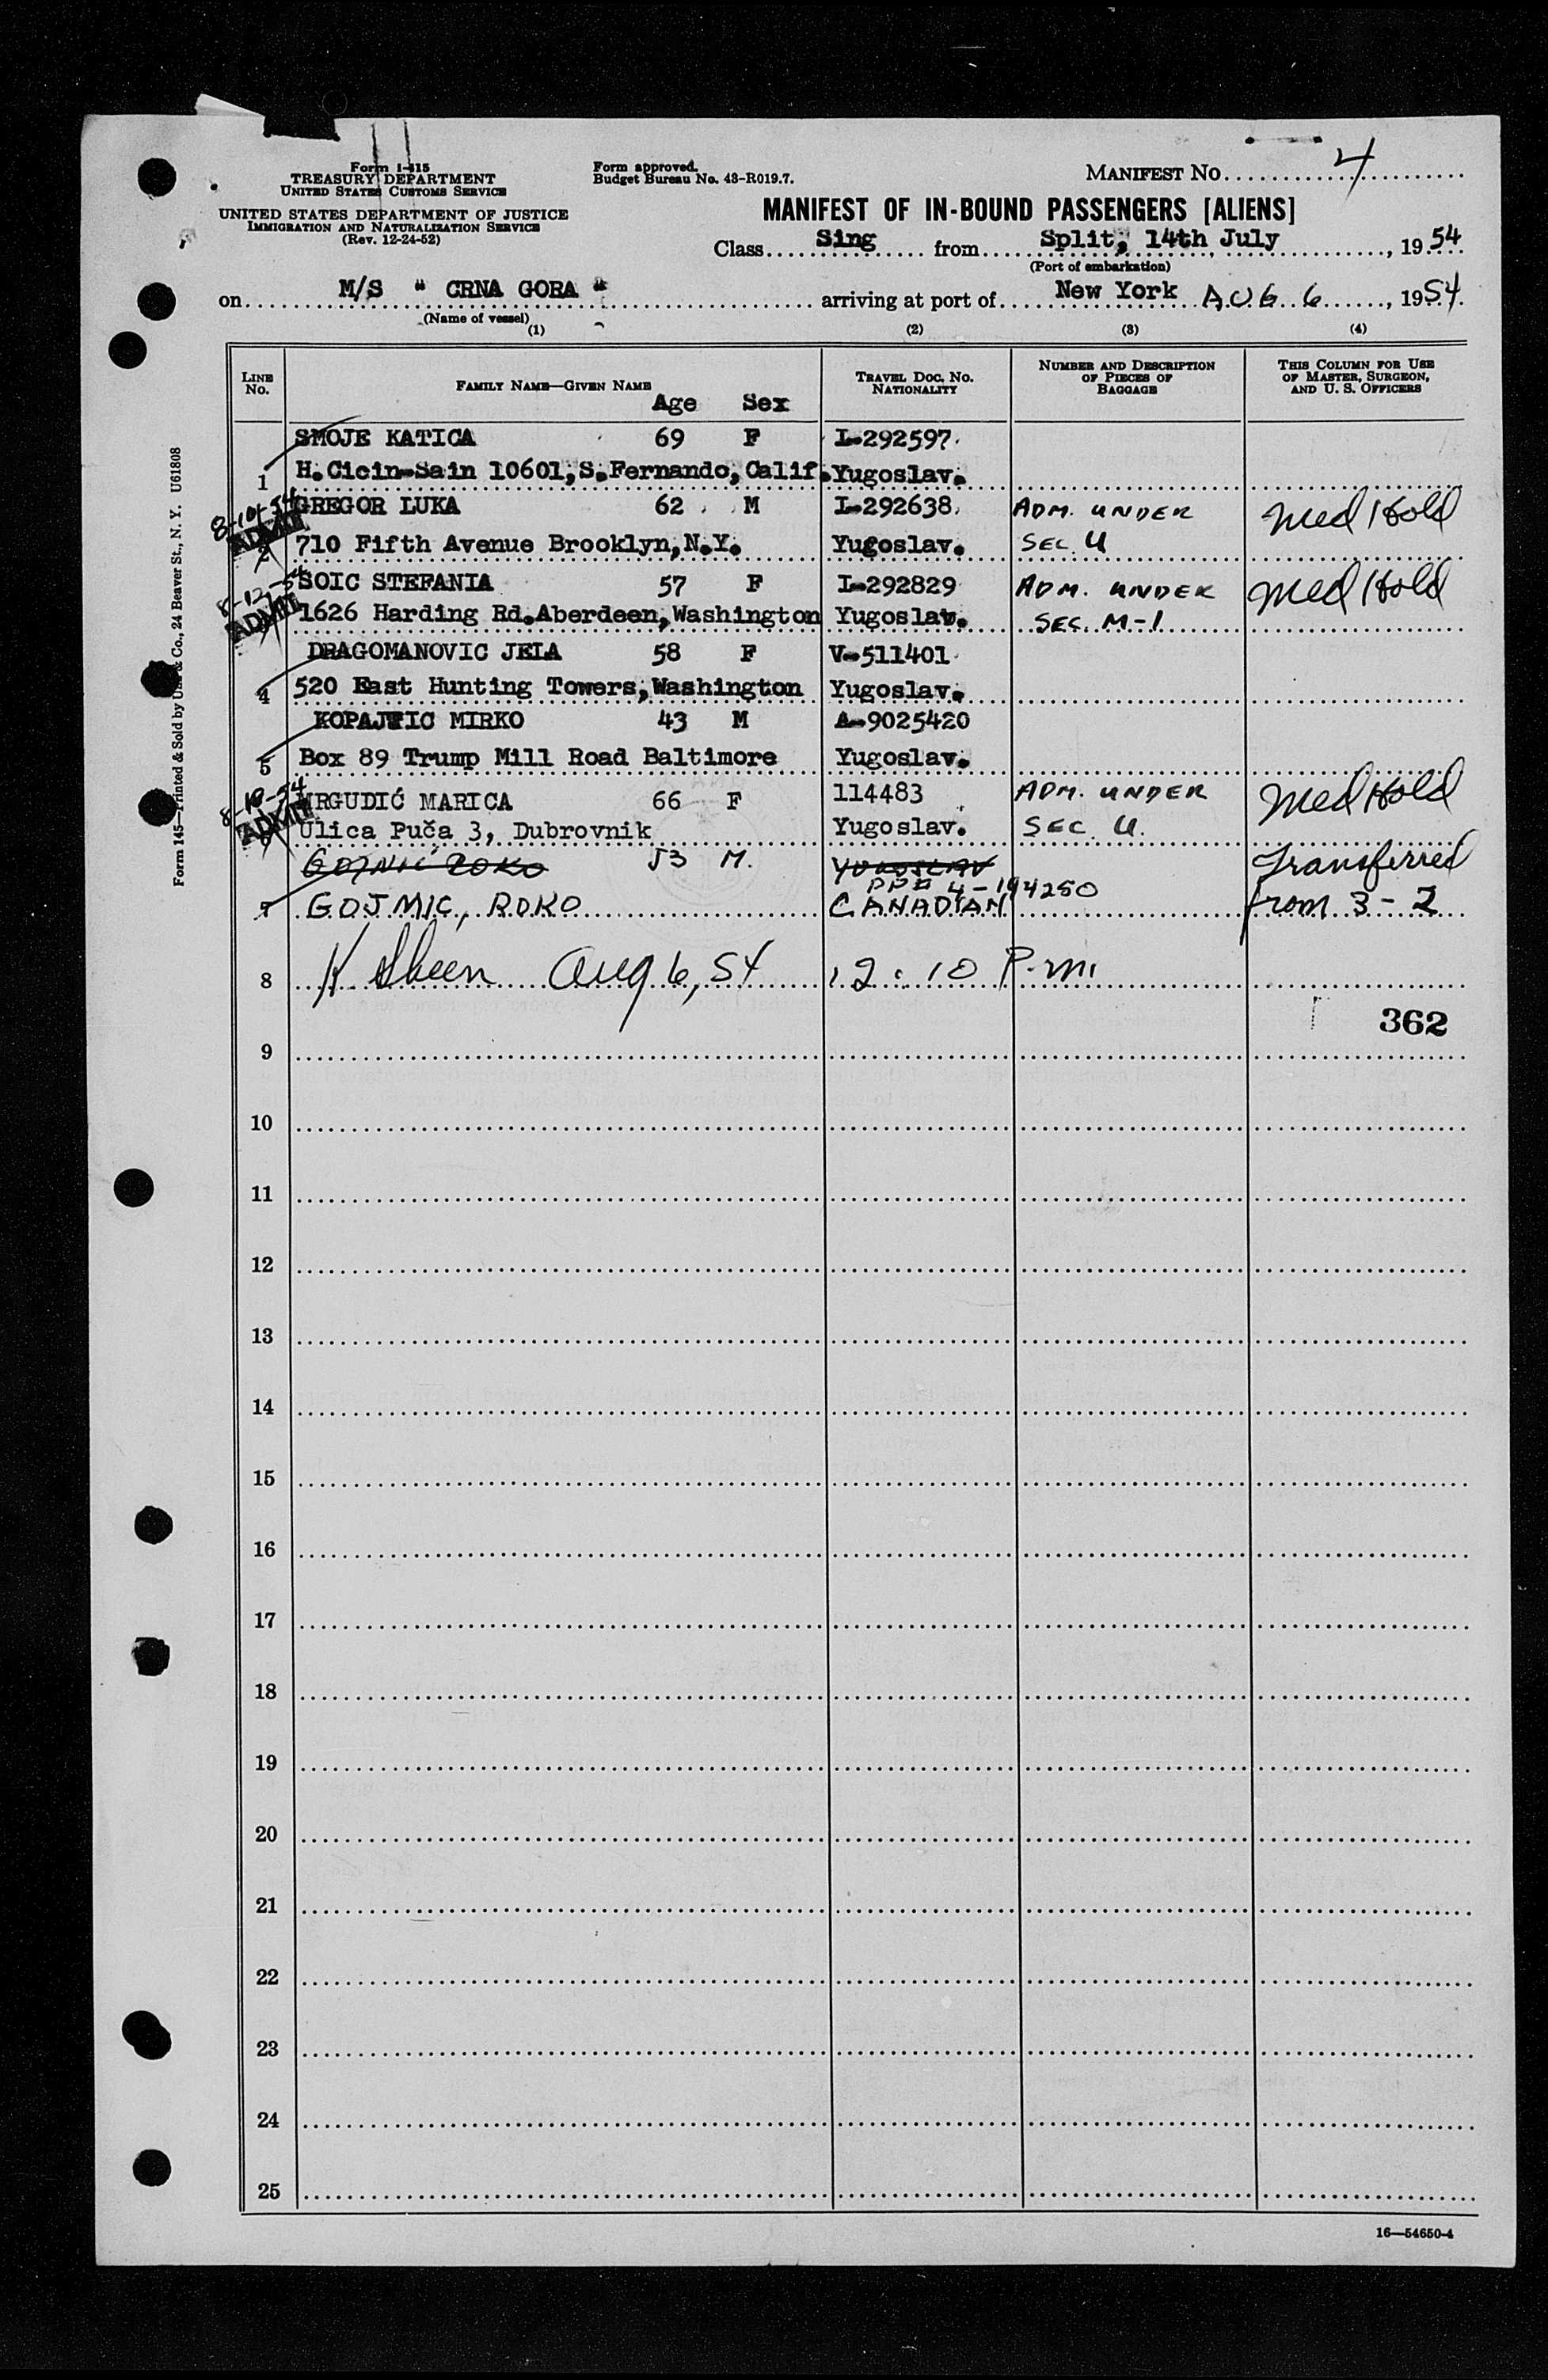 Form I-415
TREASURY DEPARTMENT
UNITED STATES CUSTOMS SERVICE
UNITED STATES DEPARTMENT OF JUSTICE
IMMIGRATION AND NATURALIZATION SERVICE
(Rev. 12-24-52)
Form approved.
Budget Bureau No. 43-R019.7.
MANIFEST NO. 4
MANIFEST OF IN-BOUND PASSENGERS [ALIENS]
Class Sing from Split, 14th July, 1954
(Port of embarkation)
on M/S " CRNA GORA " arriving at port of New York AUG 6, 1954
(Name of vessel)
(1) (2) (3) (4)
LINE NO. FAMILY NAME—GIVEN NAME Age Sex TRAVEL DOC. NO. NATIONALITY NUMBER AND DESCRIPTION OF PIECES OF BAGGAGE THIS COLUMN FOR USE OF MASTER, SURGEON, AND U. S. OFFICERS
SMOJE KATICA 69 F I-292597
1 H.Cicin-Sain 10601,S.Fernando,Calif. Yugoslav.
8-10-54 GREGOR LUKA 62 M I-292638 ADM. UNDER Med Hold
ADMIT 710 Fifth Avenue Brooklyn,N.Y. Yugoslav. SEC. U
8-12-54 SOIC STEFANIA 57 F I-292829 ADM. UNDER Med Hold
ADMIT 1626 Harding Rd.Aberdeen,Washington Yugoslav. SEC. M-1
DRAGOMANOVIC JELA 58 F V-511401
4 520 East Hunting Towers,Washington Yugoslav.
KOPAJTIC MIRKO 43 M A-9025420
5 Box 89 Trump Mill Road Baltimore Yugoslav.
8-10-54 MRGUDIĆ MARICA 66 F 114483 ADM. UNDER Med Hold
ADMIT 6 Ulica Puča 3, Dubrovnik Yugoslav. SEC. U.
ROKO 53 M. YUGOSLAV Transferred
PP# 4-194250
7 GOJMIC, ROKO CANADIAN from 3-2
8 Aug 6, 54 12:10 P.m.
362
9
10
11
12
13
14
15
16
17
18
19
20
21
22
23
24
25
16—54650-4
Form 145—Printed & Sold by & Co., 24 Beaver St., N. Y. U61808